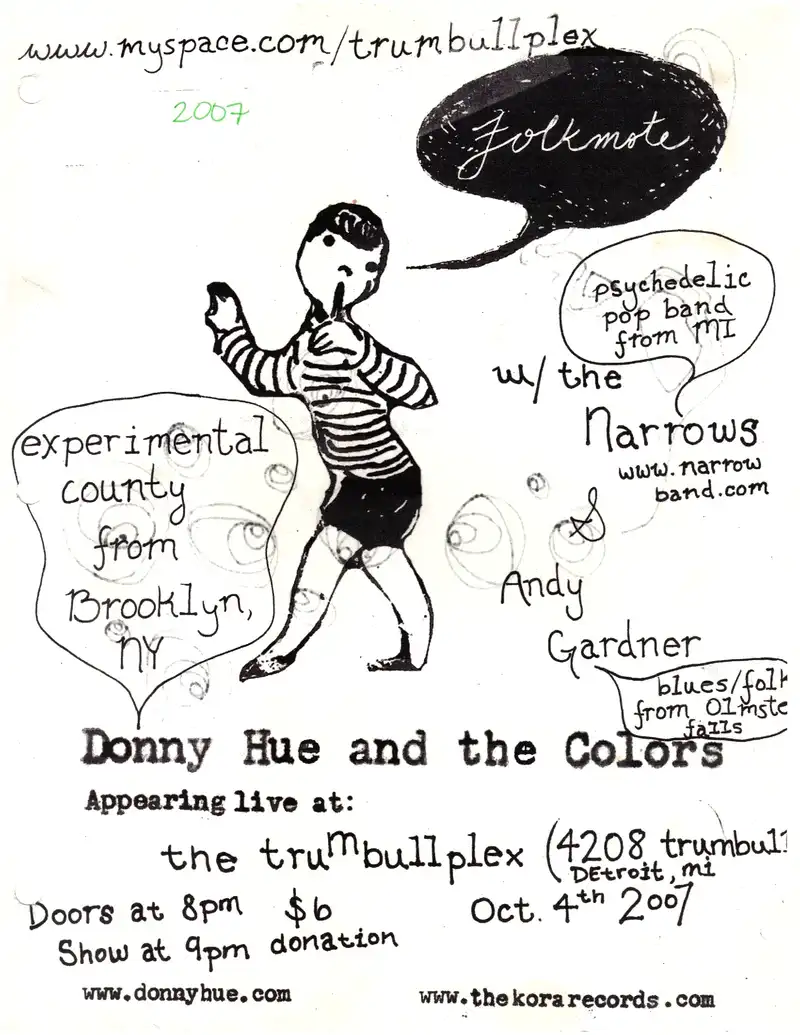 www.myspace.com/trumbullplex
2007
Folkmote
psychedelic
pop band
from MI
w/ the
Narrows
www.narrow
band.com
&
Andy
Gardner
blues/folk
from Olmste
falls
experimental
county
from
Brooklyn,
NY
Donny Hue and the Colors
Appearing live at:
the truMbullplex (4208 trumbull
DEtroit, mi
Doors at 8pm $6
Show at 9pm donation
Oct. 4th 2007
www.donnyhue.com
www.thekorarecords.com